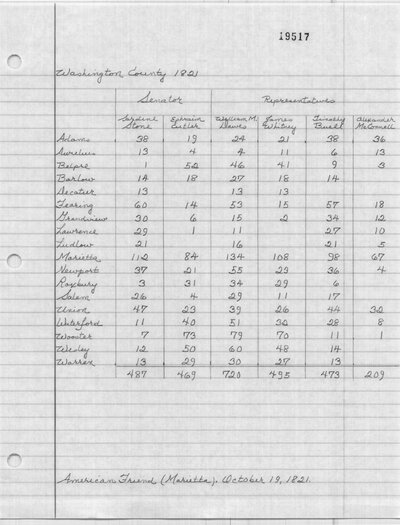 19517
Washington County 1821
Senator Representatives
Sardine Ephraim William M. James Timothy Alexander
Stone Cutler Dawes Whitney Buell McConnell
Adams 38 19 24 21 38 36
Aurelius 13 4 4 11 6 13
Belpre 1 52 46 41 9 3
Barlow 14 18 27 18 14
Decatur 13 13 13
Fearing 60 14 53 15 57 18
Grandview 30 6 15 2 34 12
Lawrence 29 1 11 27 10
Ludlow 21 16 21 5
Marietta 112 84 134 108 98 67
Newport 37 21 55 23 36 4
Roxbury 3 31 34 29 6
Salem 26 4 29 11 17
Union 47 23 39 26 44 32
Waterford 11 40 51 32 28 8
Wooster 7 73 79 70 11 1
Wesley 12 50 60 48 14
Warren 13 29 30 27 13
487 469 720 495 473 209
American Friend (Marietta). October 19, 1821.